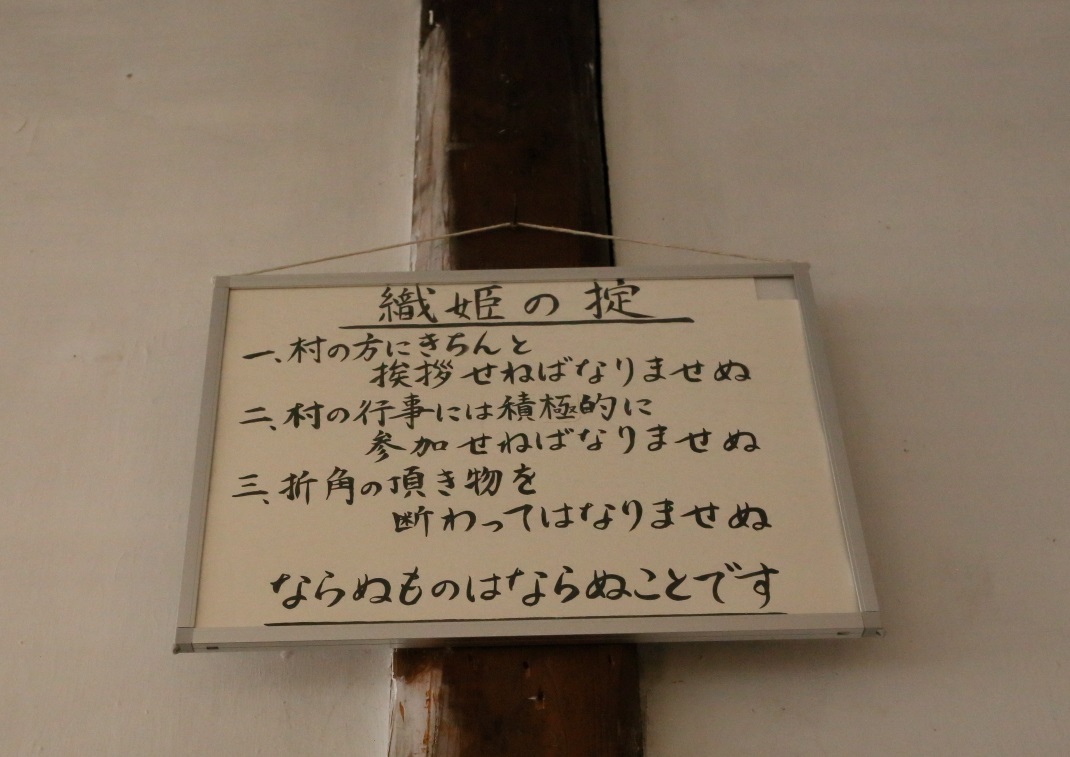 織姫の掟
一、村の方にきちんと
挨拶せねばなりませぬ
二、村の行事には積極的に
参加せねばなりませぬ
三、折角の頂き物を
断わってはなりませぬ
ならぬものはならぬことです